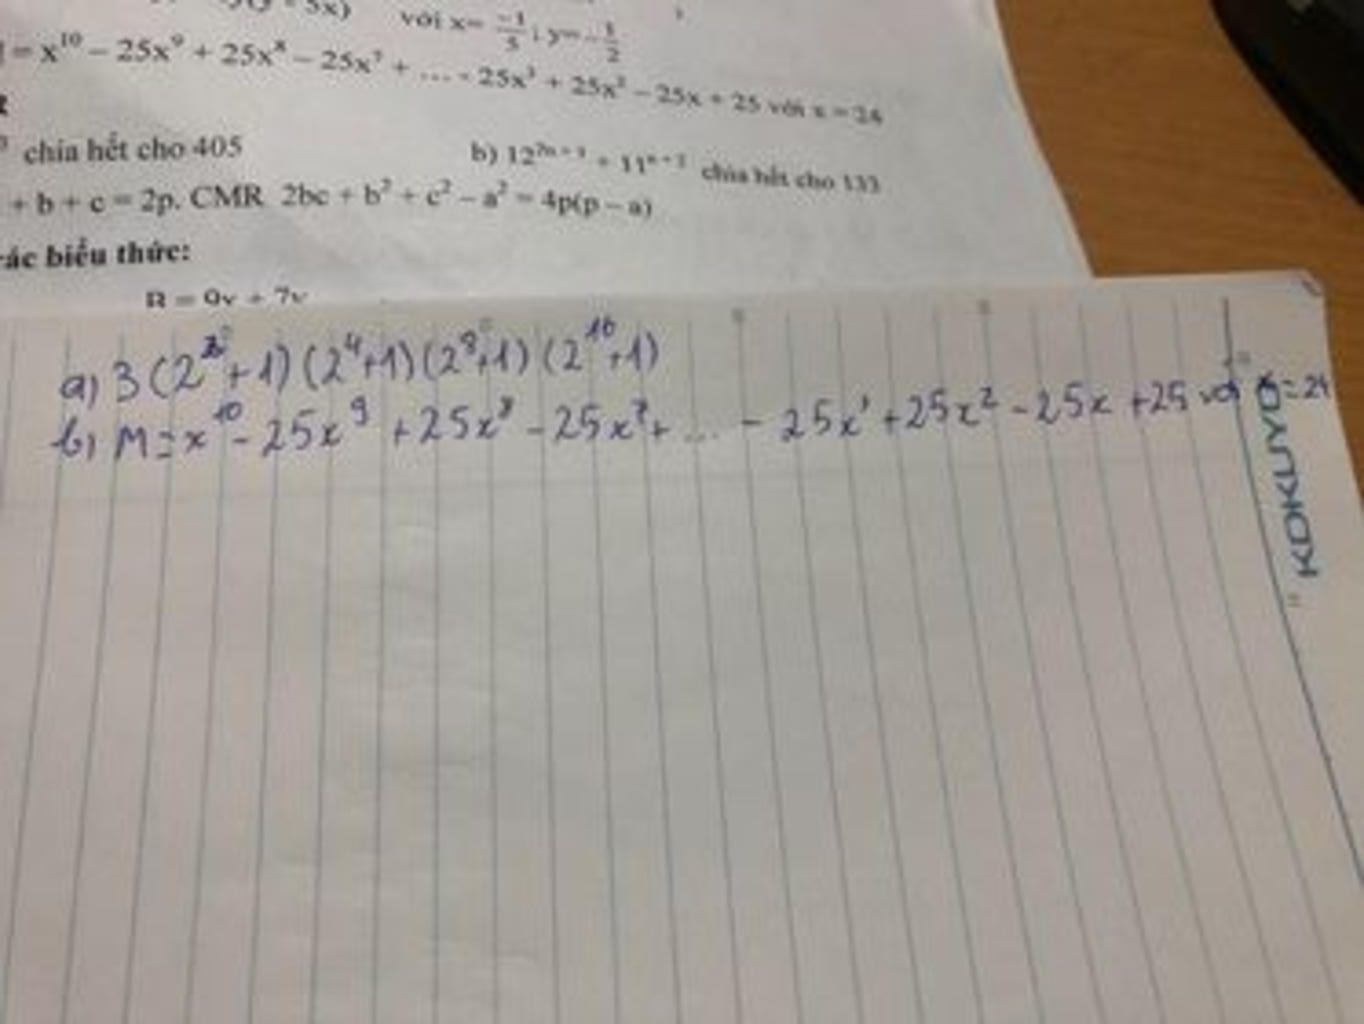 5x) với x= -1/5 ; y=-1/2
= x¹⁰ – 25x⁹ + 25x⁸ – 25x⁷ + ... - 25x³ + 25x² – 25x + 25 với x = 24
chia hết cho 405 b) 12²ⁿ⁺¹ + 11ⁿ⁺² chia hết cho 133
+ b + c = 2p. CMR 2bc + b² + c² – a² = 4p(p – a)
các biểu thức:
a) 3(2²+1)(2⁴+1)(2⁸+1)(2¹⁶+1)
b) M = x¹⁰ - 25x⁹ + 25x⁸ - 25x⁷ + ... - 25x³ + 25x² - 25x + 25 với x=24
KOKUYO